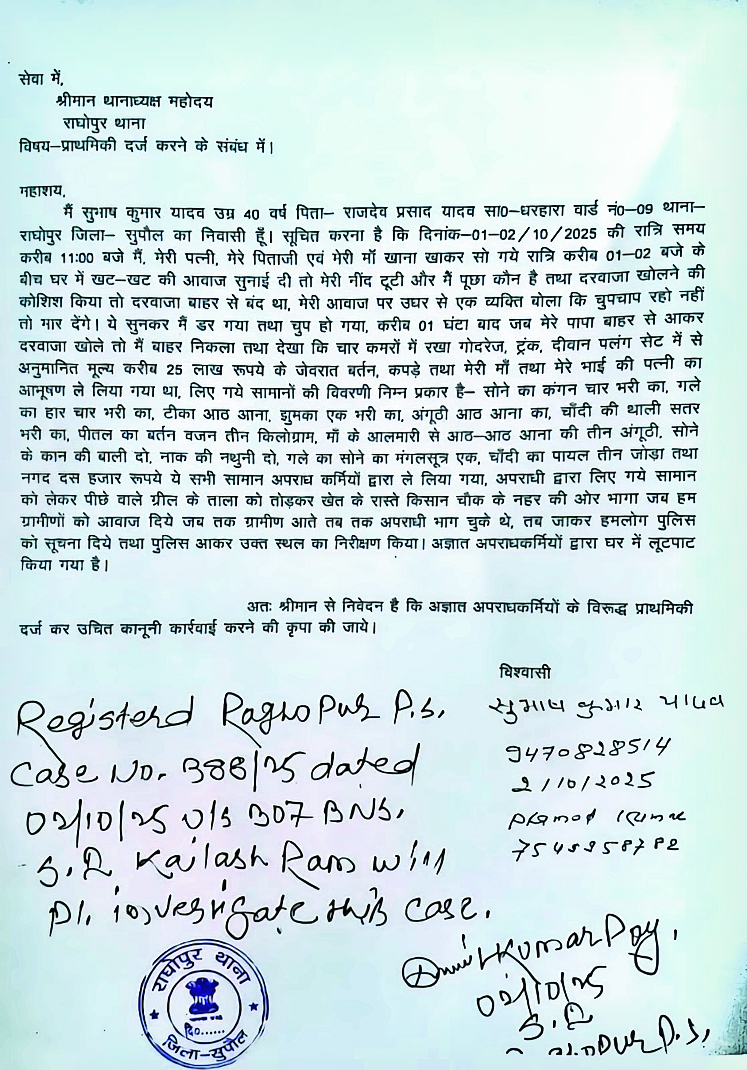 सेवा में,
श्रीमान थानाध्यक्ष महोदय
राघोपुर थाना
विषय–प्राथमिकी दर्ज करने के संबंध में।
महाशय,
मैं सुभाष कुमार यादव उम्र 40 वर्ष पिता– राजदेव प्रसाद यादव सा0–धरहारा वार्ड नं0–09 थाना–
राघोपुर जिला– सुपौल का निवासी हूँ। सूचित करना है कि दिनांक–01–02/10/2025 की रात्रि समय
करीब 11:00 बजे मैं, मेरी पत्नी, मेरे पिताजी एवं मेरी माँ खाना खाकर सो गये रात्रि करीब 01–02 बजे के
बीच घर में खट–खट की आवाज सुनाई दी तो मेरी नींद टूटी और मैं पूछा कौन है तथा दरवाजा खोलने की
कोशिश किया तो दरवाजा बाहर से बंद था, मेरी आवाज पर उधर से एक व्यक्ति बोला कि चुपचाप रहो नहीं
तो मार देंगे। ये सुनकर मैं डर गया तथा चुप हो गया, करीब 01 घंटा बाद जब मेरे पापा बाहर से आकर
दरवाजा खोले तो मैं बाहर निकला तथा देखा कि चार कमरों में रखा गोदरेज, ट्रंक, दीवान पलंग सेट में से
अनुमानित मूल्य करीब 25 लाख रूपये के जेवरात बर्तन, कपड़े तथा मेरी माँ तथा मेरे भाई की पत्नी का
आभूषण ले लिया गया था, लिए गये सामानों की विवरणी निम्न प्रकार है– सोने का कंगन चार भरी का, गले
का हार चार भरी का, टीका आठ आना, झुमका एक भरी का, अंगूठी आठ आना का, चाँदी की थाली सतर
भरी का, पीतल का बर्तन वजन तीन किलोग्राम, माँ के आलमारी से आठ–आठ आना की तीन अंगूठी, सोने
के कान की बाली दो, नाक की नथुनी दो, गले का सोने का मंगलसूत्र एक, चाँदी का पायल तीन जोड़ा तथा
नगद दस हजार रूपये ये सभी सामान अपराध कर्मियों द्वारा ले लिया गया, अपराधी द्वारा लिए गये सामान
को लेकर पीछे वाले ग्रील के ताला को तोड़कर खेत के रास्ते किसान चौक के नहर की ओर भागा जब हम
ग्रामीणों को आवाज दिये जब तक ग्रामीण आते तब तक अपराधी भाग चुके थे, तब जाकर हमलोग पुलिस
को सूचना दिये तथा पुलिस आकर उक्त स्थल का निरीक्षण किया। अज्ञात अपराधकर्मियों द्वारा घर में लूटपाट
किया गया है।
अतः श्रीमान से निवेदन है कि अज्ञात अपराधकर्मियों के विरूद्ध प्राथमिकी
दर्ज कर उचित कानूनी कार्रवाई करने की कृपा की जाये।
विश्वासी
सुभाष कुमार यादव
9470828514
2/10/2025
Pramod Kumar
Registerd Raghopur P.S.
Case No. 388/25 dated
02/10/25 U/S 307 BNS.
S.I. Kailash Ram will
Pl. investigate this case.
Kumar Roy.
02/10/25
S.I.
P.S.
राघोपुर थाना
दि0......
जिला–सुपौल